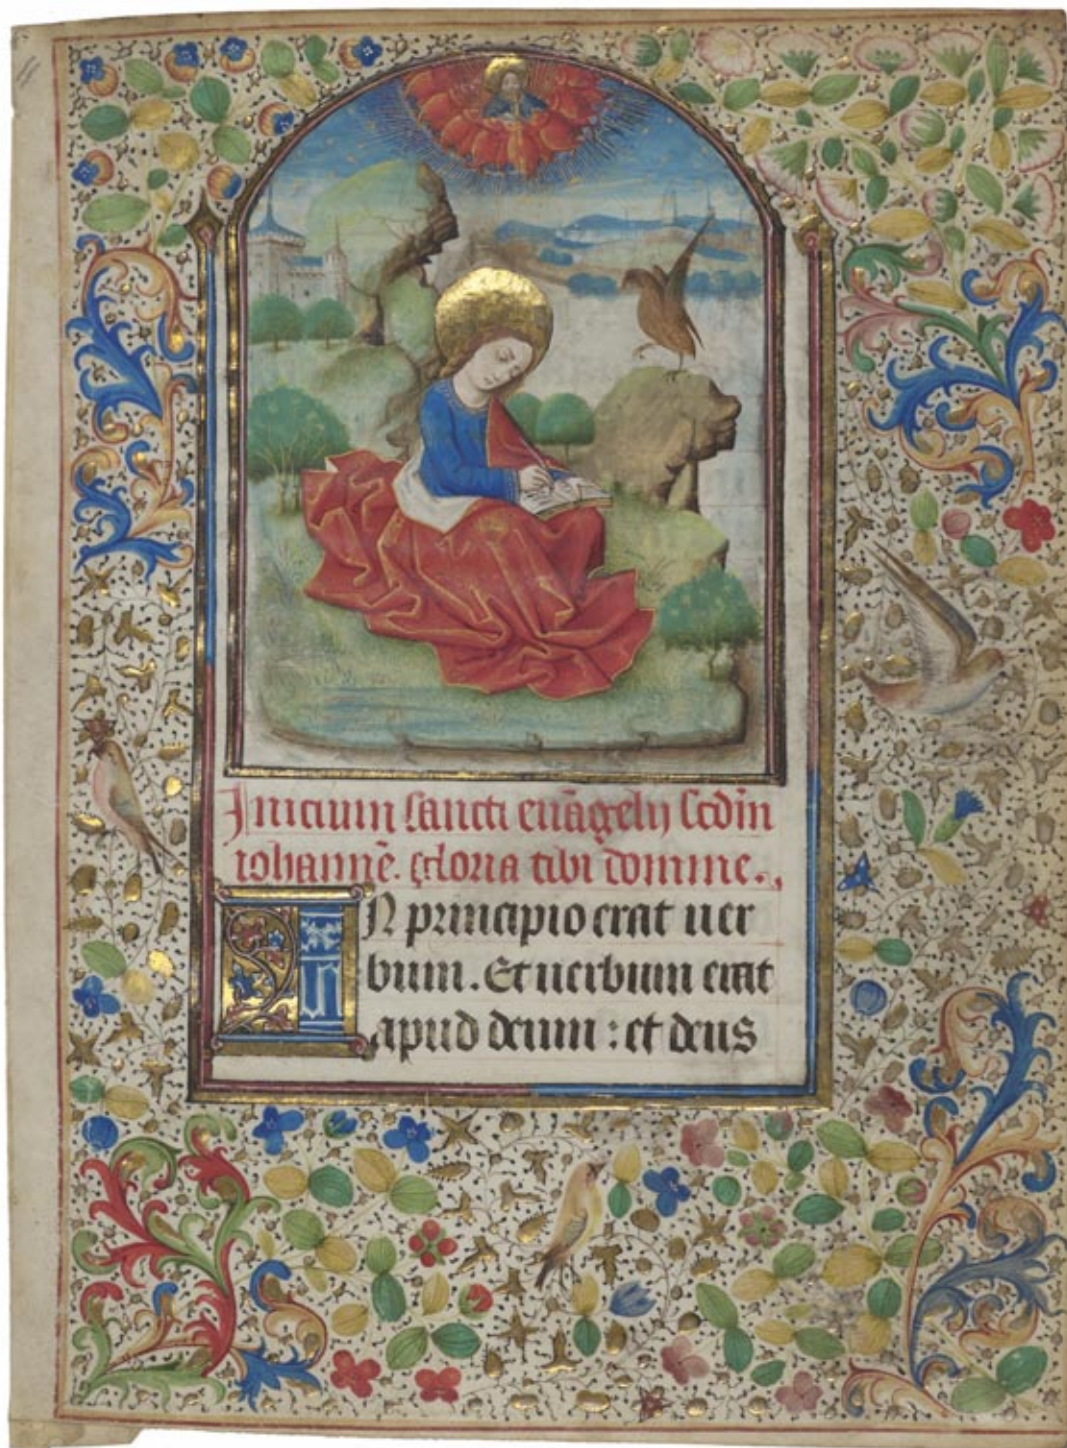 Inicium sancti euāgelij scdm̄
iohannē. gloria tibi domine.
IN principio erat uer
bum. Et uerbum erat
apud deum : et deus